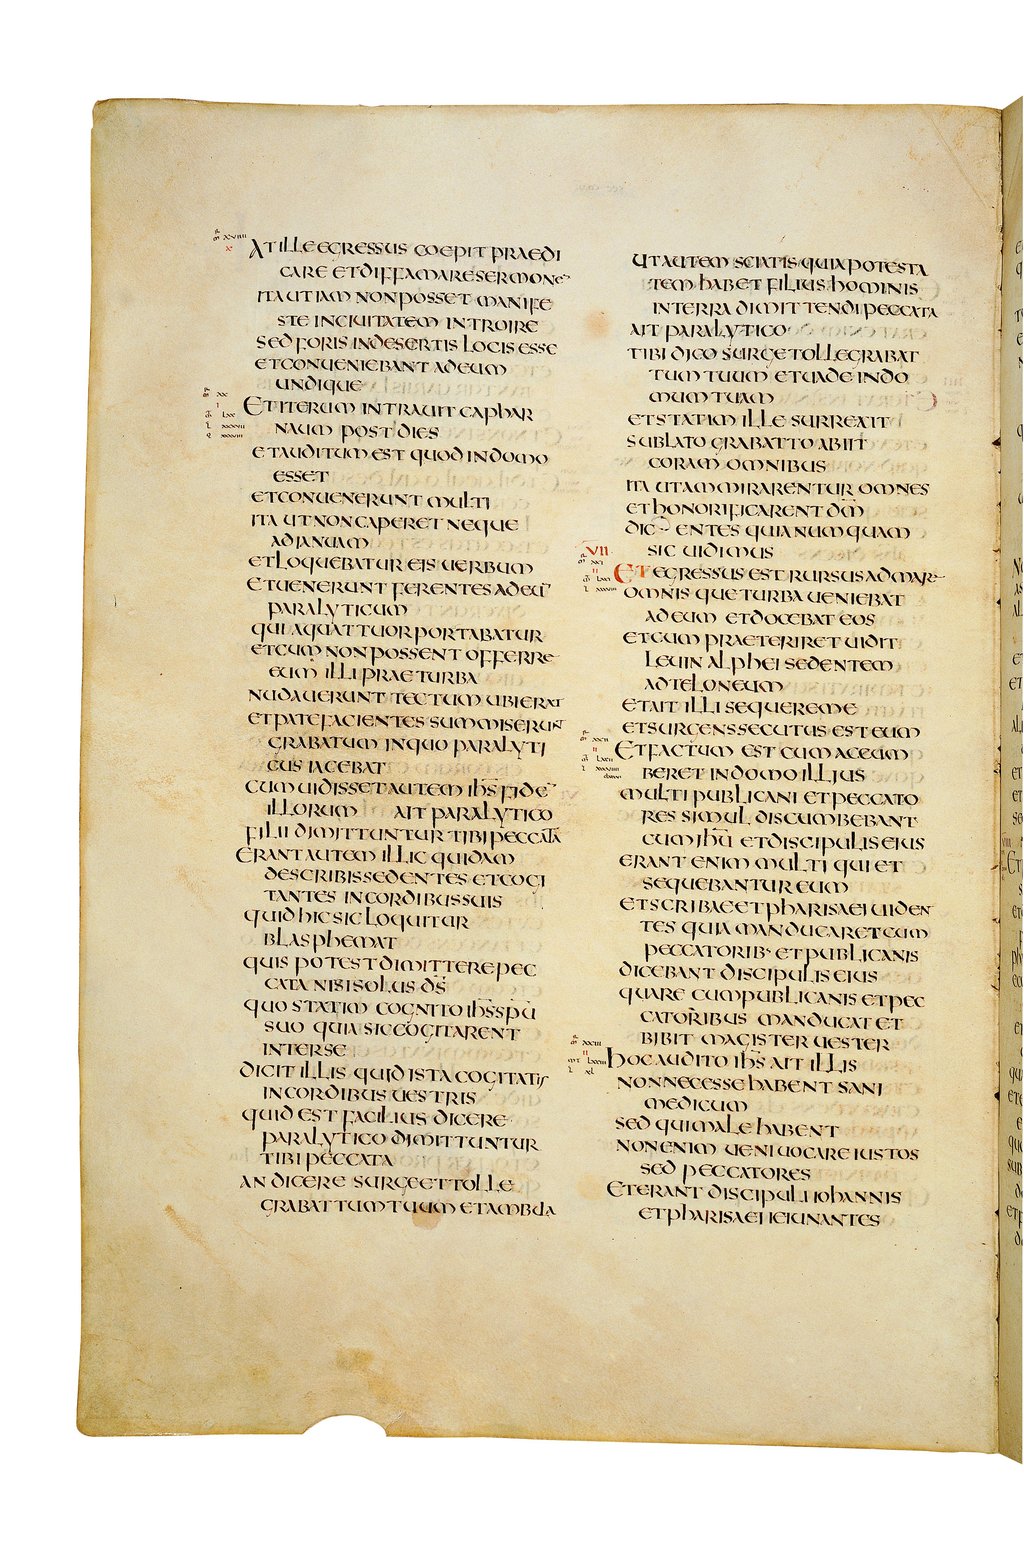 AT ILLE EGRESSUS COEPIT PRAEDI
CARE ET DIFFAMARE SERMONE
ITA UT IAM NON POSSET MANIFE
STE IN CIUITATEM INTROIRE
SED FORIS IN DESERTIS LOCIS ESSE
ET CONUENIEBANT AD EUM
UNDIQUE
ET ITERUM INTRAUIT CAPHAR
NAUM POST DIES
ET AUDITUM EST QUOD IN DOMO
ESSET
ET CONUENERUNT MULTI
ITA UT NON CAPERET NEQUE
AD IANUAM
ET LOQUEBATUR EIS UERBUM
ET UENERUNT FERENTES AD EŪ
PARALYTICUM
QUI A QUATTUOR PORTABATUR
ET CUM NON POSSENT OFFERRE
EUM ILLI PRAE TURBA
NUDAUERUNT TECTUM UBI ERAT
ET PATEFACIENTES SUMMISERUNT
GRABATUM IN QUO PARALYTI
CUS IACEBAT
CUM UIDISSET AUTEM IHS FIDE
ILLORUM AIT PARALYTICO
FILII DIMITTUNTUR TIBI PECCATA
ERANT AUTEM ILLIC QUIDAM
DE SCRIBIS SEDENTES ET COGI
TANTES IN CORDIBUS SUIS
QUID HIC SIC LOQUITUR
BLASPHEMAT
QUIS POTEST DIMITTERE PEC
CATA NISI SOLUS DS
QUO STATIM COGNITO IHS SPU
SUO QUIA SIC COGITARENT
INTER SE
DICIT ILLIS QUID ISTA COGITATIS
IN CORDIBUS UESTRIS
QUID EST FACILIUS DICERE
PARALYTICO DIMITTUNTUR
TIBI PECCATA
AN DICERE SURGE ET TOLLE
GRABATTUM TUUM ET AMBULA
UT AUTEM SCIATIS QUIA POTESTA
TEM HABET FILIUS HOMINIS
IN TERRA DIMITTENDI PECCATA
AIT PARALYTICO
TIBI DICO SURGE TOLLE GRABAT
TUM TUUM ET UADE IN DO
MUM TUAM
ET STATIM ILLE SURREXIT
SUBLATO GRABATTO ABIIT
CORAM OMNIBUS
ITA UT AMMIRARENTUR OMNES
ET HONORIFICARENT DM
DICENTES QUIA NUMQUAM
SIC UIDIMUS
VII
ET EGRESSUS EST RURSUS AD MARE
OMNISQUE TURBA UENIEBAT
AD EUM ET DOCEBAT EOS
ET CUM PRAETERIRET UIDIT
LEUIN ALPHEI SEDENTEM
AD TELONEUM
ET AIT ILLI SEQUERE ME
ET SURGENS SECUTUS EST EUM
ET FACTUM EST CUM ACCUM
BERET IN DOMO ILLIUS
MULTI PUBLICANI ET PECCATO
RES SIMUL DISCUMBEBANT
CUM IHU ET DISCIPULIS EIUS
ERANT ENIM MULTI QUI ET
SEQUEBANTUR EUM
ET SCRIBAE ET PHARISAEI UIDEN
TES QUIA MANDUCARET CUM
PECCATORIB· ET PUBLICANIS
DICEBANT DISCIPULIS EIUS
QUARE CUM PUBLICANIS ET PEC
CATORIBUS MANDUCAT ET
BIBIT MAGISTER UESTER
HOC AUDITO IHS AIT ILLIS
NON NECESSE HABENT SANI
MEDICUM
SED QUI MALE HABENT
NON ENIM UENI UOCARE IUSTOS
SED PECCATORES
ET ERANT DISCIPULI IOHANNIS
ET PHARISAEI IEIUNANTES